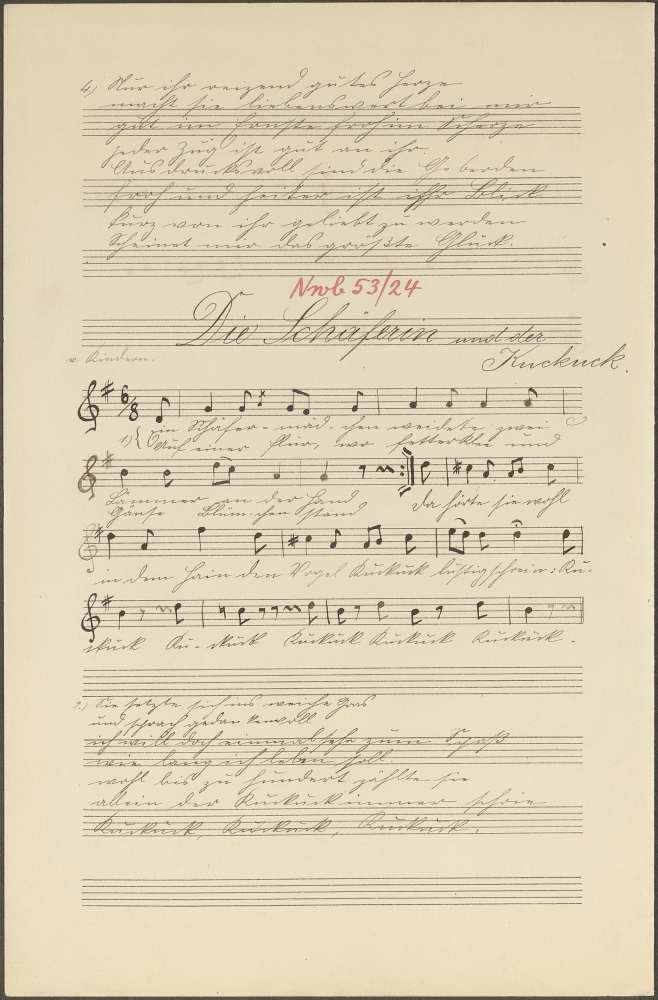 4.) Nur ihr reizend gutes Herze
macht sie liebenswert bei mir
gut im Ernste froh im Scherze
jeder Zug ist gut an ihr.
Ausdrucksvoll sind die Geberden
froh und heiter ist ihr Blick
kurz von ihr geliebt zu werden
Scheinet mir das größte Glück.
Nwb 53/24
Die Schäferin und der
Kuckuck.
v. Kindern.
6/8
1) Ein Schäfer-mäd-chen weidete zwei
Auf einer Flur, wo fetter Klee und
Lämmer an der Hand
Gänse Blüm-chen stand
da hörte sie wohl
in dem Hain den Vogel Kuckuck lustig schrein: Ku-
ckuck Ku-ckuck Kuckuck Kuckuck Kuckuck.
2.) Sie setzte sich ins weiche Gras
und sprach gedankenvoll
ich will doch einmal sehe zum Spaß
wie lang ich leben soll.
wohl bis zu hundert zählte sie
allein der Kuckuck immer schrie
Kuckuck, Kuckuck, Kuckuck.